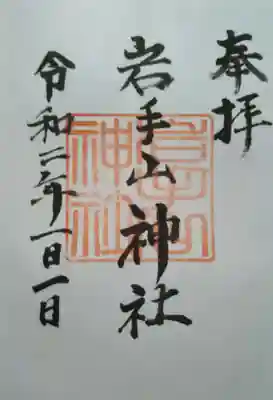 奉拝
岩手山神社
令和二年一月一日
神社